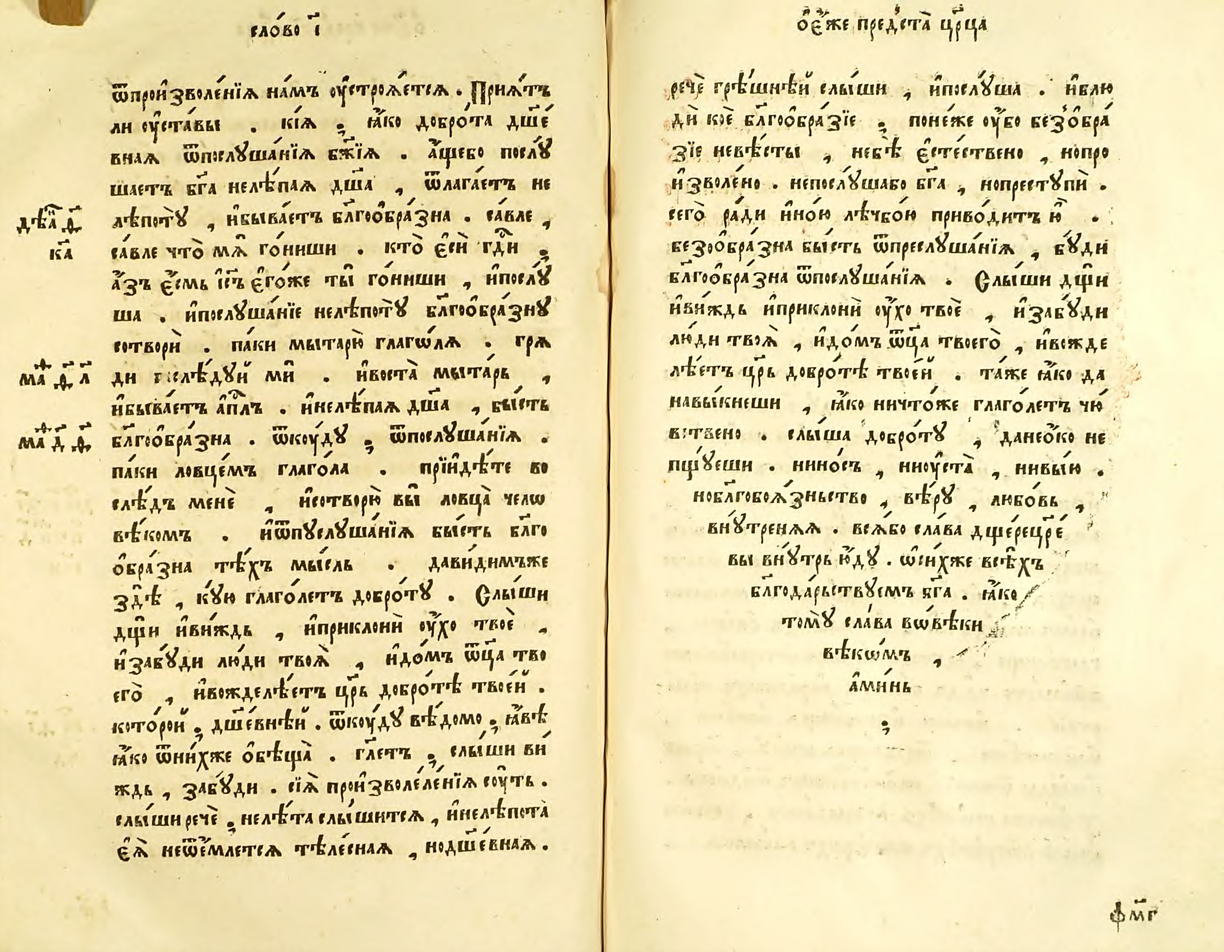 сло́во і҃
ѿпроизволе́нїѧ на́мъ оу҆строѧ́етсѧ . Прїѧ́тъ
ли оу҆ста́вы . кі́ѧ ; ꙗ҆́ко добро́та дш҃е́
внаѧ ѿпослꙋша́нїѧ бж҃їѧ . а҆́щебо послꙋ́
шаетъ бг҃а нелѣ́паѧ дш҃а̀ , ѿлага́етъ не
лѣ́потꙋ̀ , и҆быва́етъ бл҃гоѻбра́зна . са́вле ,
дѣѧ҃ ѳ҃
са́вле что̀ мѧ̀ го́ниши . кто̀ є҆сѝ гд҃и ;
ка҃
а҆́зъ є҆́смь і҆с҃ъ є҆го́же ты̀ го́ниши , и҆послꙋ́
ша . и҆послꙋша́нїе нелѣ́потꙋ̀ бл҃гоѻбра́знꙋ
сотворѝ . па́ки мытарю̀ глаго́лѧ . грѧ
ди послѣ́дꙋй мѝ . и҆воста̀ мыта́рь ,
ма ѳ҃ л҃
и҆быва́етъ а҆пⷭ҇лъ . и҆нелѣ́паѧ дш҃а̀ , бы́сть
бл҃гоѻбра́зна . ѿкоу́дꙋ ; ѿпослꙋша́нїѧ .
ма д҃ ѳ҃
па́ки ловце́мъ глаго́ла . прїидѣ́те во
слѣ́дъ менѐ , и҆сотворю̀ вы̀ ловца̀ чело
вѣ́комъ . и҆ѿпꙋслꙋша́нїѧ бы́сть бл҃го
ѻ҆бра́зна тѣ́хъ мы́сль . дави́димъже
здѣ̀ , кꙋ́ю глаго́летъ добро́тꙋ . Слы́ши
дщ҃и и҆ви́ждь , и҆приклонѝ оу҆́хо твоѐ ,
и҆забꙋ́ди лю́ди твоѧ̀ , и҆до́мъ ѿц҃а̀ тво
его̀ , и҆вожделѣ́етъ цр҃ь добро́тѣ твое́й .
кото́рой ; дш҃е́внѣй . ѿкоу́дꙋ вѣ́домо ; ꙗ҆́вѣ
ꙗ҆́ко ѿни́хже ѻ҆бѣща̀ . гл҃етъ ; слы́ши ви́
ждь , забꙋ́ди . сїѧ̀ произволеле́нїѧ соу́ть .
слы́ши речѐ ; нелѣ́та слы́шитсѧ , и҆нелѣ́пота
є҆ѧ̀ неѿе́млетсѧ тѣле́снаѧ , нодш҃е́внаѧ .
ѻ҆є҆́же предста̀ цр҃ца
речѐ грѣ́шнѣй слы́ши , и҆послꙋ́ша . и҆влю
дѝ коѐ бл҃гоѻбра́зїе ; поне́же оу҆́бо безѻ́бра́
зїе невѣ́сты , небѣ̀ є҆сте́ствено , нопро
и҆зволе́но . непослꙋ́шабо бг҃а , нопрестꙋпѝ .
сего̀ ра́ди и҆но́ю лѣ́чбо́ю приво́дитъ ю҆̀ .
безоѻбра́зна бы́сть ѿпреслꙋша́нїѧ , бꙋ́ди
бл҃гоѻбра́зна ѿпослꙋша́нїѧ . Слы́ши дщ҃и
и҆ви́ждь и҆приклонѝ оу҆́хо твоѐ , и҆забꙋ́ди
лю́ди твоѧ̀ , и҆до́мъ ѿц҃а твоего̀ , и҆вожде
лѣ́етъ цр҃ь добро́тѣ твое́й . та́же ꙗ҆́ко да
навы́кнеши , ꙗ҆́ко ничто́же глаго́летъ чю́
вствено . слы́ша добро́тꙋ , данеѻ́ко не
пщꙋ́еши . нино́съ , ниоуста̀ , нивы́ю .
ноблгобоѧ́зньство , вѣ́рꙋ , любо́вь ,
внꙋ́тренѧѧ . всѧ́бо сла́ва дще́рецр҃е́
вы внꙋ́трь и҆́дꙋ . ѡ҆ни́хже всѣ́хъ
благода́рьствꙋемъ бг҃а . ꙗ҆́ко
томꙋ̀ сла́ва вѡвѣ́ки
вѣ́кѡмъ ,
а҆ми́нь
;
ф҃мг